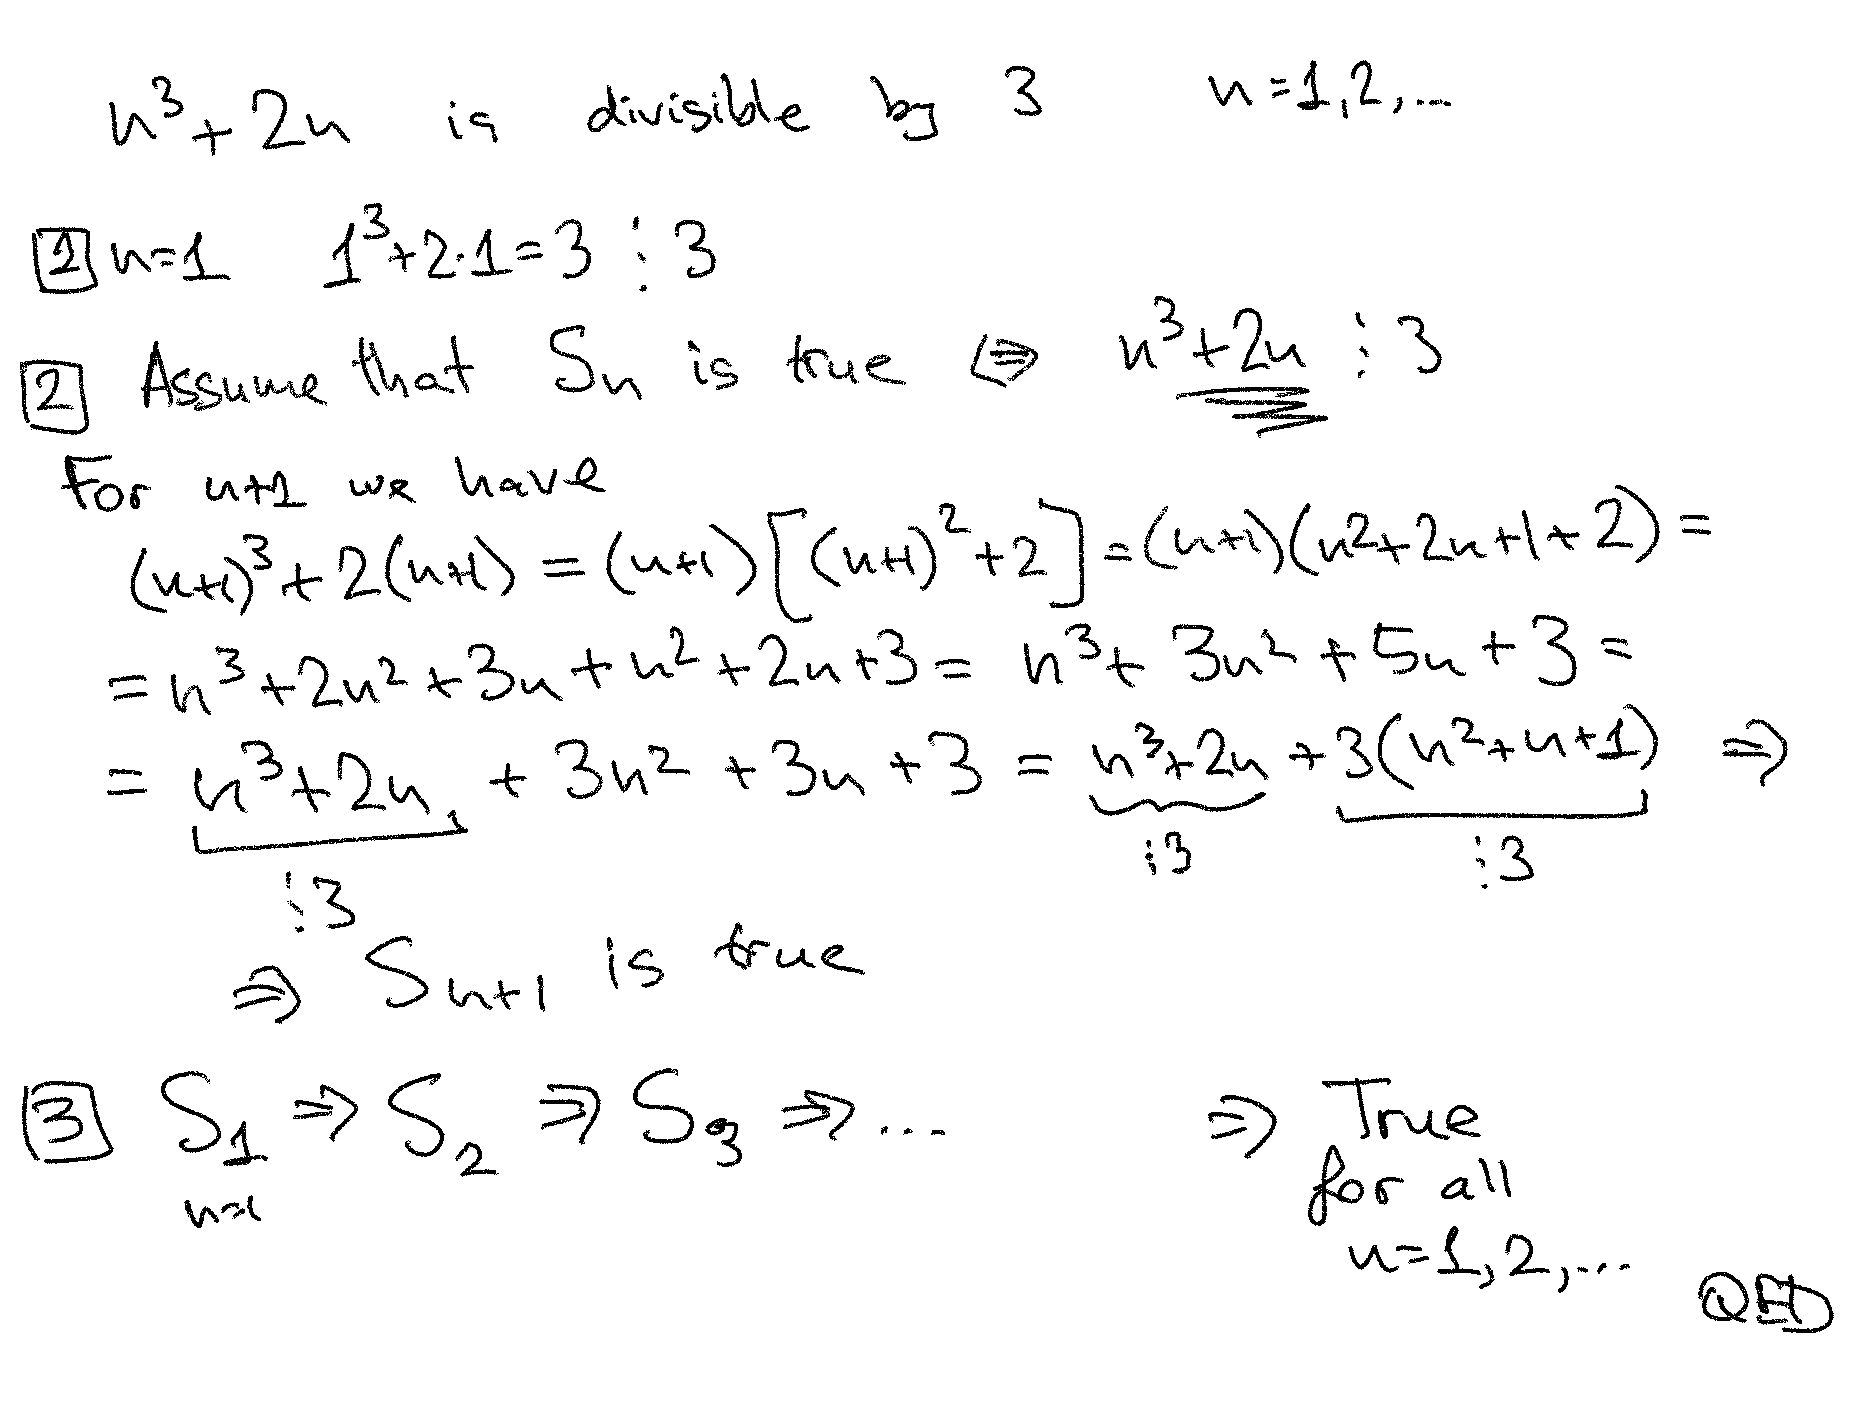 n³+2n is divisible by 3 n=1,2,...
1 n=1 1³+2·1=3 ⋮ 3
2 Assume that Sn is true ⇔ n³+2n ⋮ 3
For n+1 we have
(n+1)³+2(n+1) = (n+1)[(n+1)²+2] = (n+1)(n²+2n+1+2) =
= n³+2n²+3n+n²+2n+3 = n³+3n²+5n+3 =
= n³+2n + 3n²+3n+3 = n³+2n+3(n²+n+1) ⇒
⋮3 ⋮3
⋮3
⇒ Sn+1 is true
3 S1 ⇒ S2 ⇒ S3 ⇒ ... ⇒ True
n=1 for all
n=1,2,...
QED